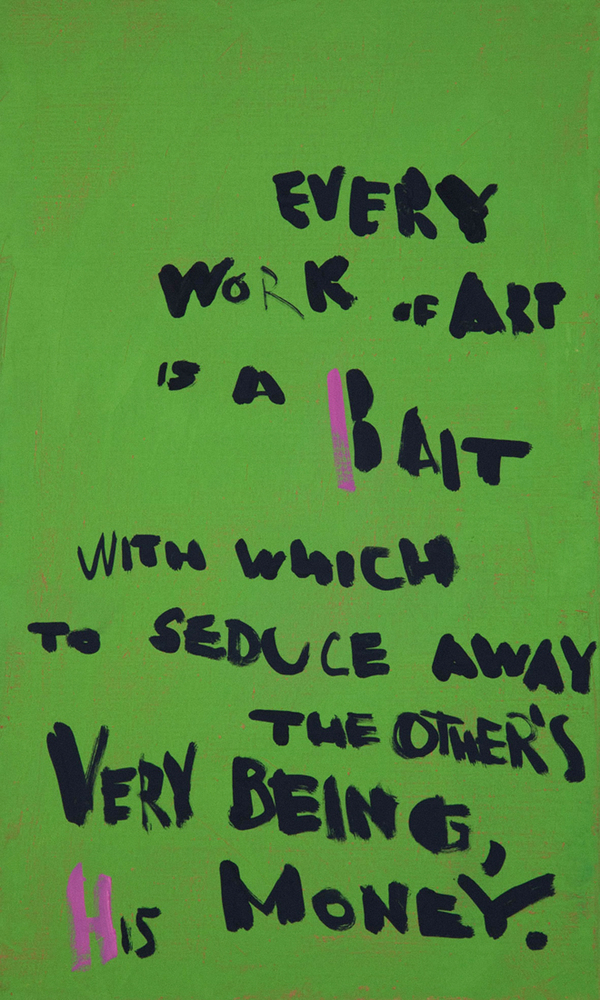 EVERY
WORK OF ART
IS A BAIT
WITH WHICH
TO SEDUCE AWAY
THE OTHER'S
VERY BEING,
HIS MONEY.